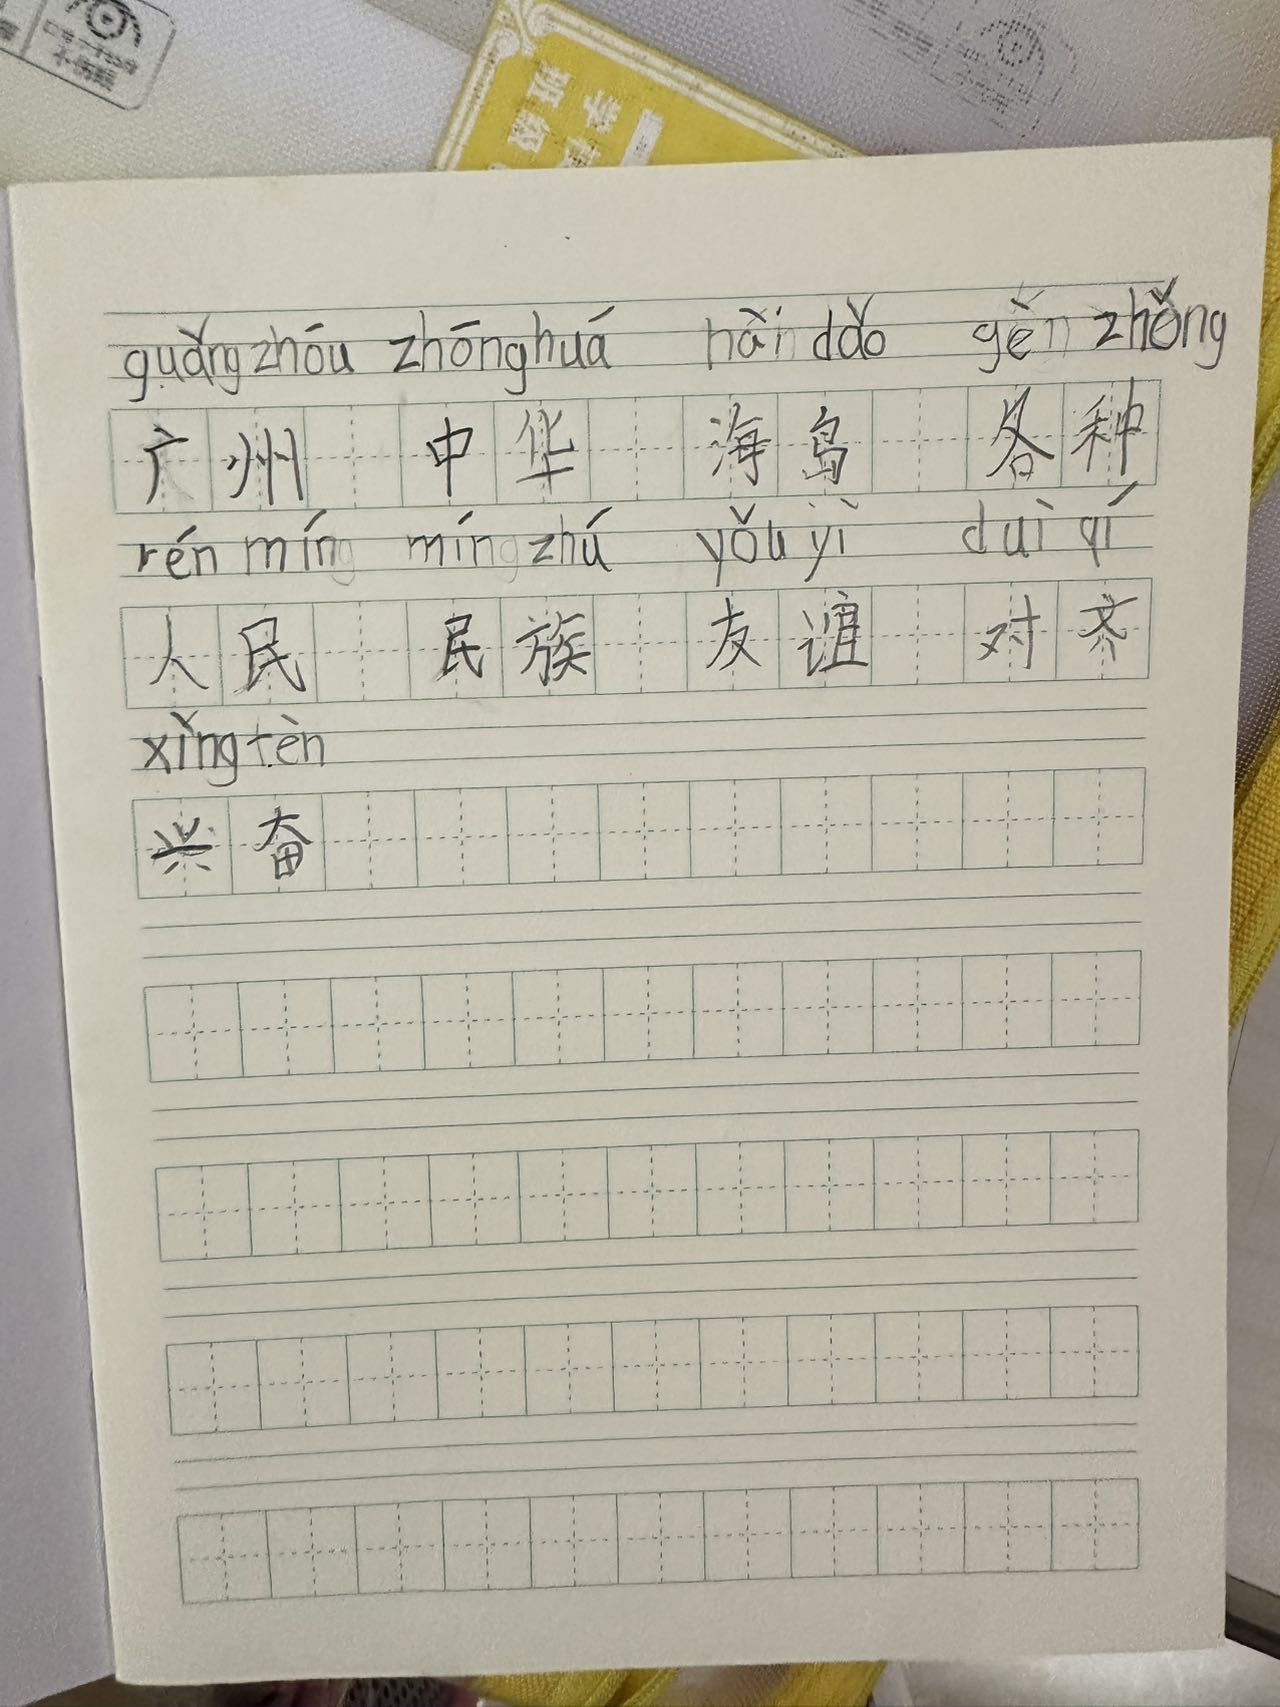 guǎng zhóu zhōng huá hǎi dǎo gě zhǒng
广州 中华 海岛 各种
rén mín mín zhú yǒu yì duì qí
人民 民族 友谊 对齐
xǐng tèn
兴奋